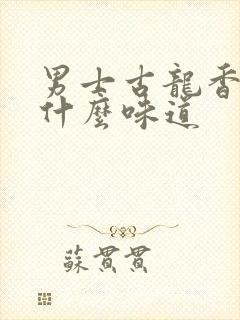 男士古龍香
什麼味道
蘇貫貫